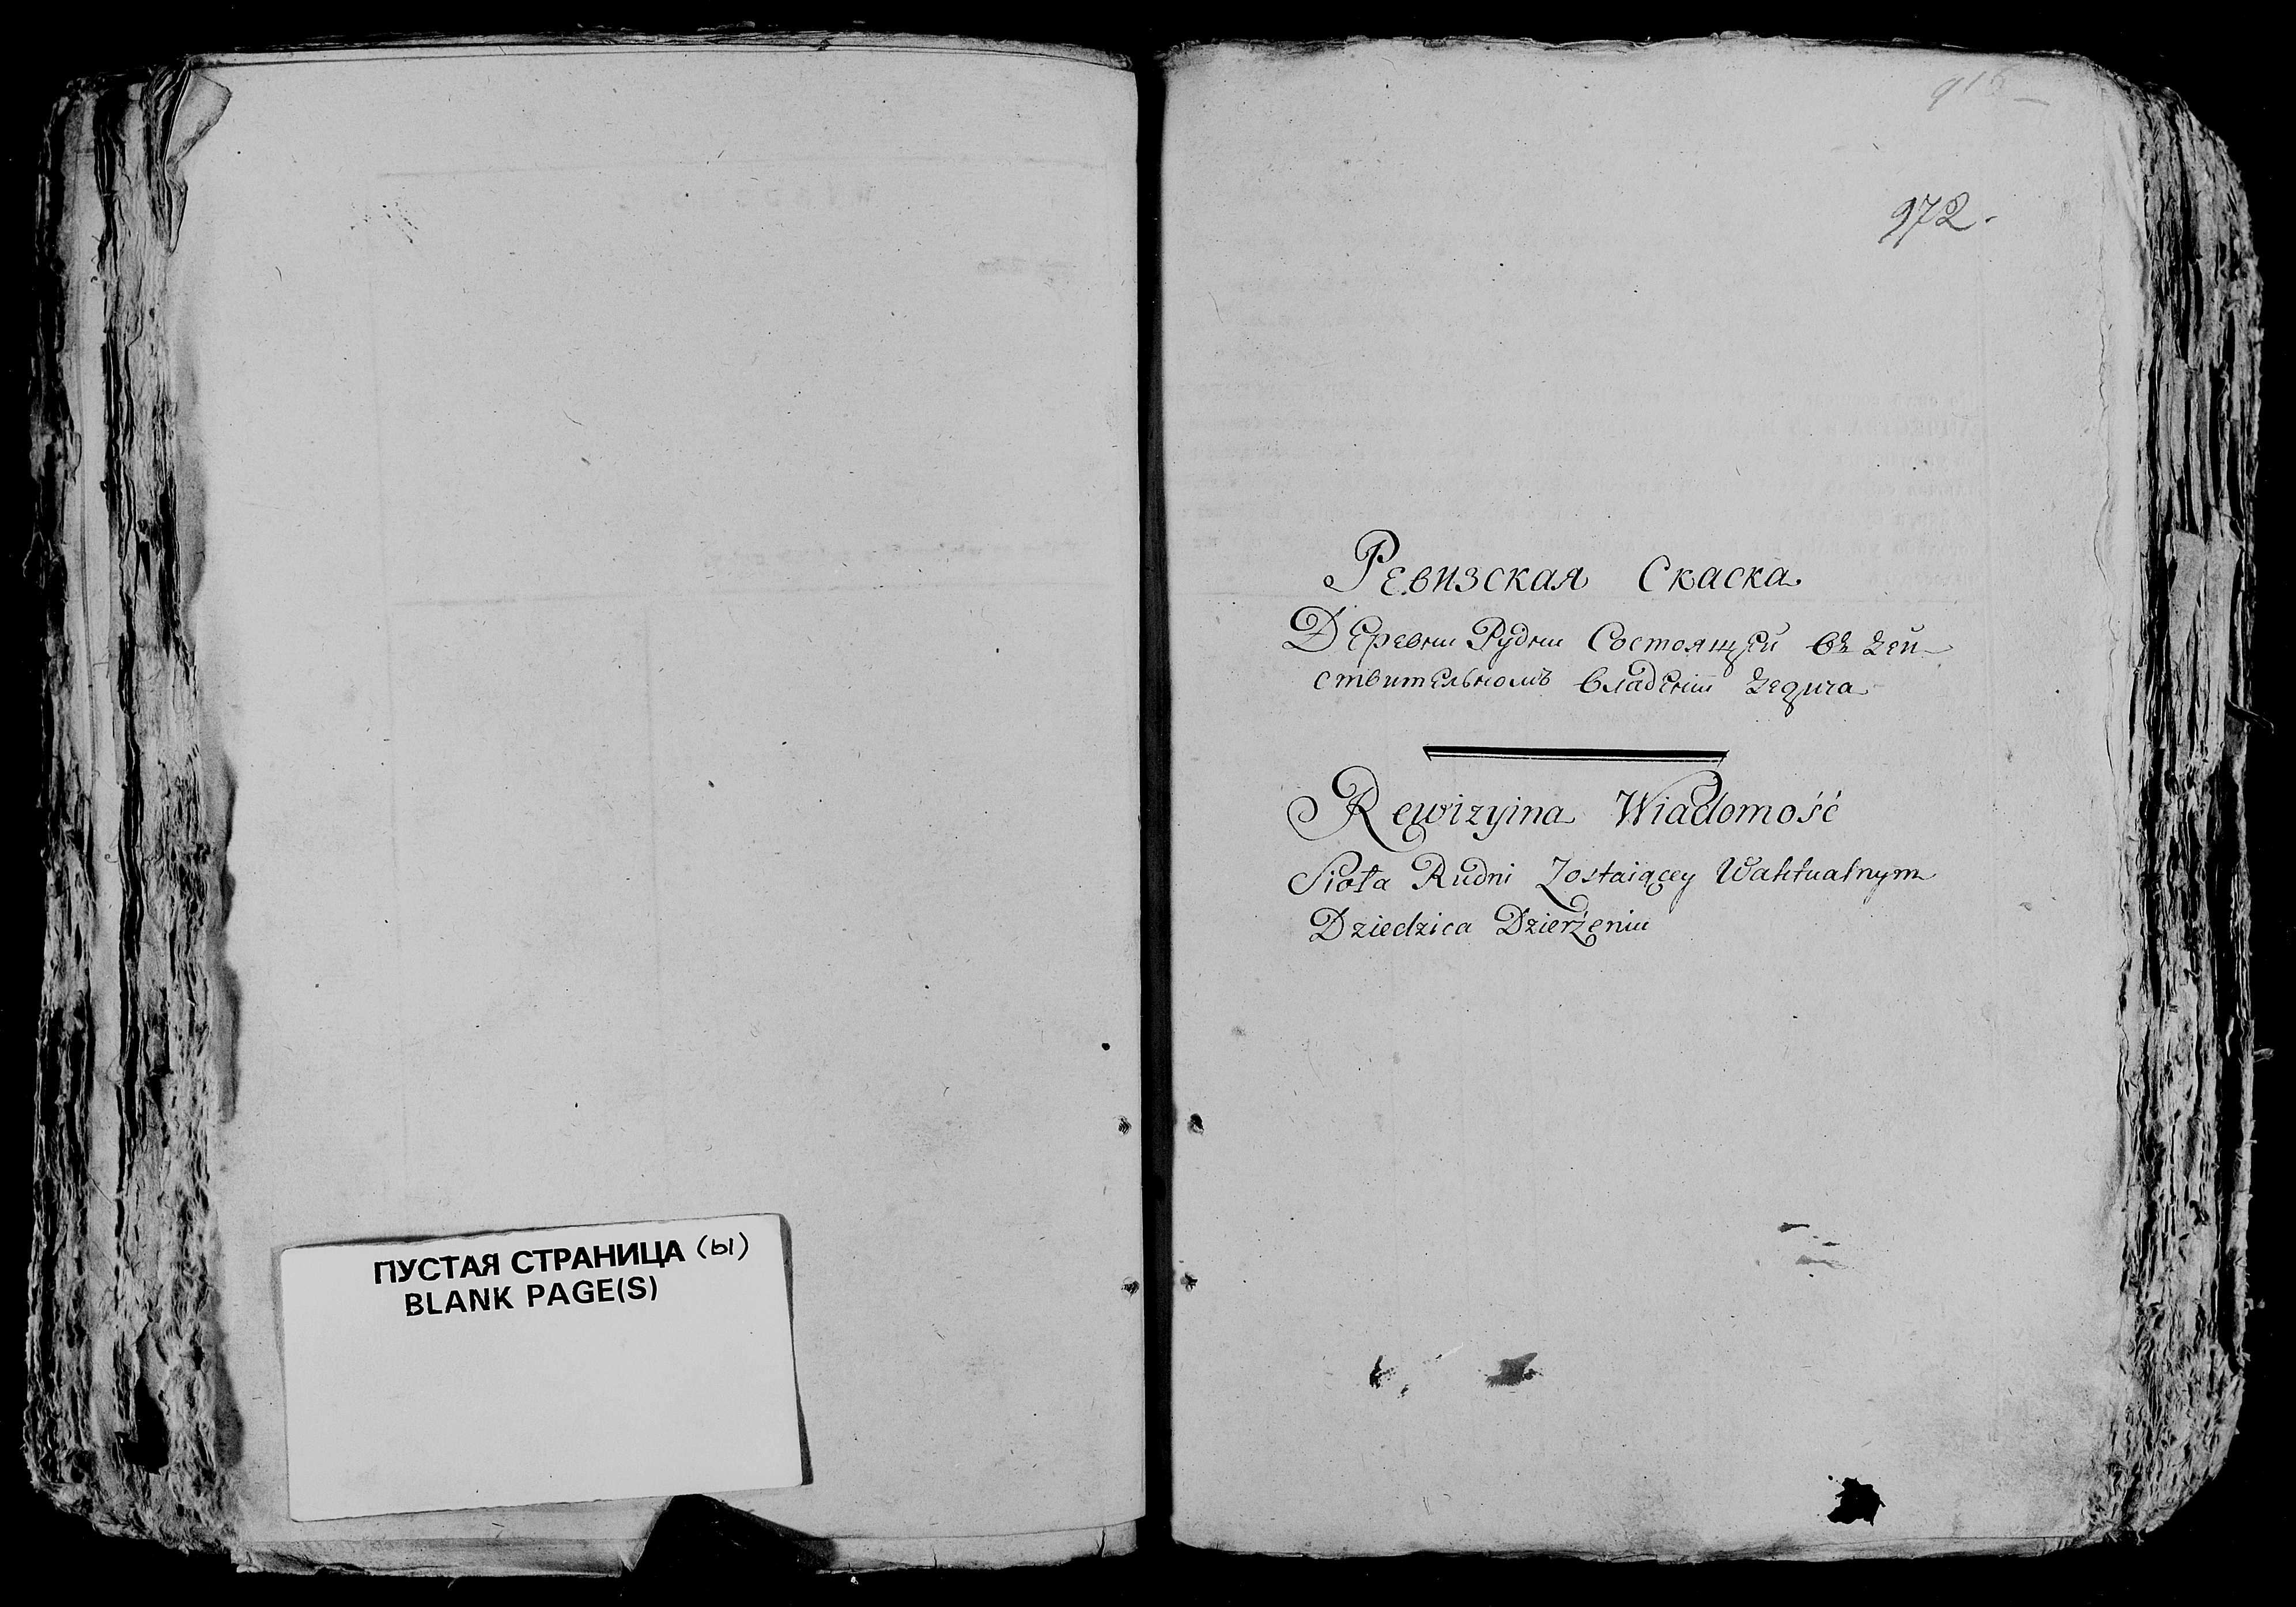 ПУСТАЯ СТРАНИЦА (ы)
BLANK PAGE(S)
972.
Ревизская Скаска
Деревни Рудни Состоящей въ деи-
ствительномъ владении дедича
Rewizyina Wiadomość
Sioła Rudni Zostaiącey Waktualnym
Dziedzica Dzierżeniu